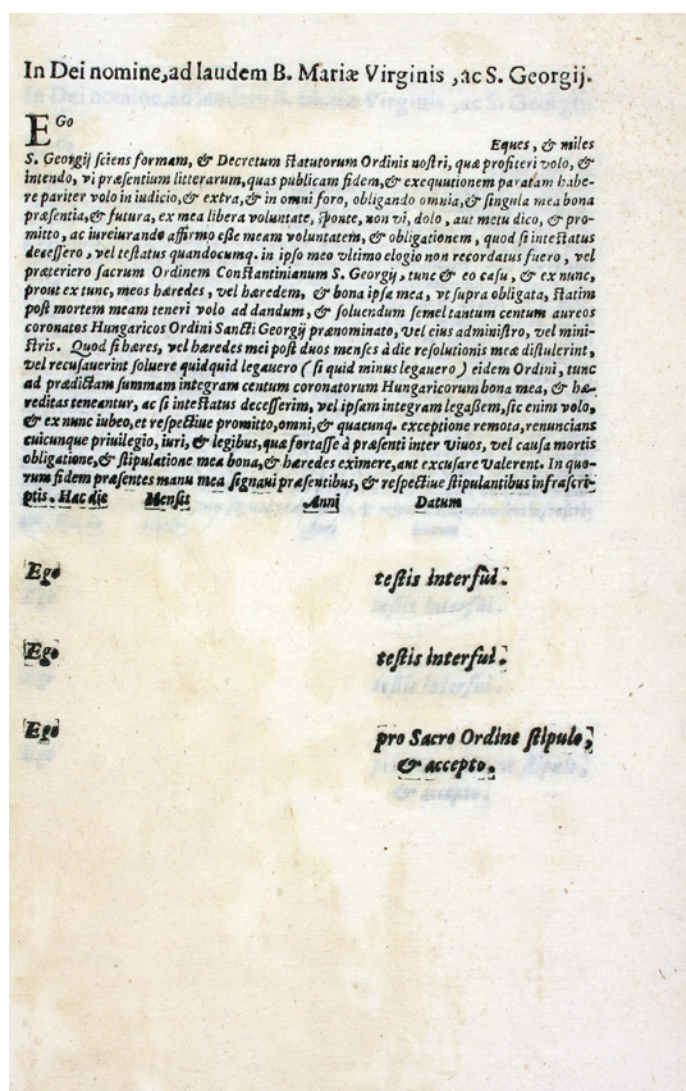 In Dei nomine, ad laudem B. Mariæ Virginis, ac S. Georgij.
EGo Eques, & miles
S. Georgij sciens formam, & Decretum statutorum Ordinis nostri, quæ profiteri volo, &
intendo, vi præsentium litterarum, quas publicam fidem, & exequutionem paratam habe-
re pariter volo in iudicio, & extra, & in omni foro, obligando omnia, & singula mea bona
præsentia, & futura, ex mea libera voluntate, sponte, non vi, dolo, aut metu dico, & pro-
mitto, ac iureiurando affirmo esse meam voluntatem, & obligationem, quod si intestatus
decessero, vel testatus quandocumq. in ipso meo vltimo elogio non recordatus fuero, vel
præteriero sacrum Ordinem Constantinianum S. Georgij, tunc & eo casu, & ex nunc,
prout ex tunc, meos hæredes, vel hæredem, & bona ipsa mea, vt supra obligata, statim
post mortem meam teneri volo ad dandum, & soluendum semel tantum centum aureos
coronatos Hungaricos Ordini Sancti Georgij prænominato, vel eius administro, vel mini-
stris. Quod si hæres, vel hæredes mei post duos menses à die resolutionis meæ distulerint,
vel recusauerint soluere quidquid legauero ( si quid minus legauero ) eidem Ordini, tunc
ad prædictam summam integram centum coronatorum Hungaricorum bona mea, & hæ-
reditas teneantur, ac si intestatus decesserim, vel ipsam integram legassem, sic enim volo,
& ex nunc iubeo, et respectiue promitto, omni, & quacunq. exceptione remota, renuncians
cuicunque priuilegio, iuri, & legibus, quæ fortasse à præsenti inter viuos, vel causa mortis
obligatione, & stipulatione mea bona, & hæredes eximere, aut excusare valerent. In quo-
rum fidem præsentes manu mea signaui præsentibus, & respectiue stipulantibus infrascri-
ptis. Hac die Mensis Anni Datum
Ego testis interfui.
Ego testis interfui.
Ego pro Sacro Ordine stipulo,
& accepto.